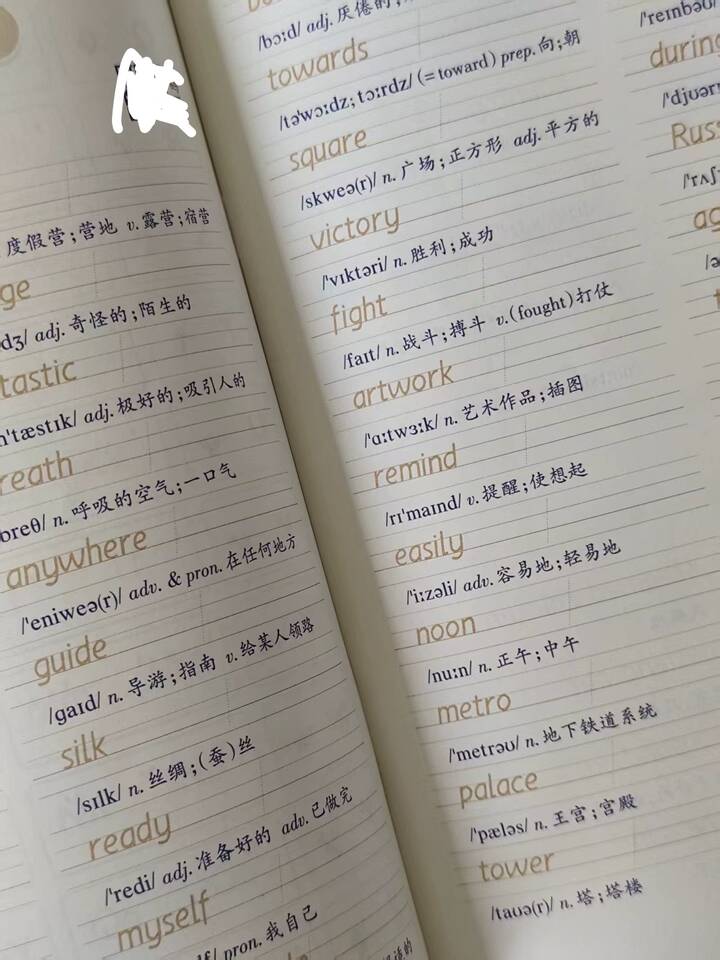 度假营;营地 v.露营;宿营
ge
dʒ/ adj.奇怪的;陌生的
tastic
n'tæstɪk/ adj.极好的;吸引人的
reath
breθ/ n.呼吸的空气;一口气
anywhere
/'eniweə(r)/ adv. & pron.在任何地方
guide
/gaɪd/ n.导游;指南 v.给某人领路
silk
/sɪlk/ n.丝绸;(蚕)丝
ready
/'redi/ adj.准备好的 adv.已做完
myself
lf/ pron.我自己
/bɔːd/ adj.厌倦的;
towards
/tə'wɔːdz; tɔːrdz/ (= toward) prep.向;朝
square
/skweə(r)/ n.广场;正方形 adj.平方的
victory
/'vɪktəri/ n.胜利;成功
fight
/faɪt/ n.战斗;搏斗 v.(fought)打仗
artwork
/'ɑːtwɜːk/ n.艺术作品;插图
remind
/rɪ'maɪnd/ v.提醒;使想起
easily
/'iːzəli/ adv.容易地;轻易地
noon
/nuːn/ n.正午;中午
metro
/'metrəʊ/ n.地下铁道系统
palace
/'pæləs/ n.王宫;宫殿
tower
/taʊə(r)/ n.塔;塔楼
/'reɪnbəʊ/
during
/'djʊərɪ
Russ
/'rʌʃ
ag
/ə